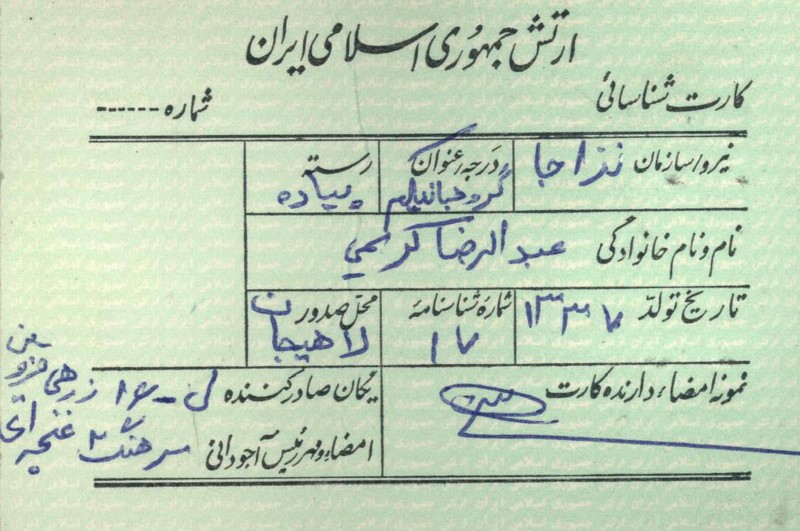 ارتش جمهوری اسلامی ایران
کارت شناسائی
شماره ------
نیرو/سازمان نزاجا درجه/عنوان گروهبانیکم رسته پیاده
نام و نام خانوادگی عبدالرضا کریمی
تاریخ تولد ۱۳۳۷ شمارهٔ شناسنامه ۱۷ محل صدور لاهیجان
نمونه امضاء دارنده کارت
یگان صادر کننده ل-۱۶ زرهی قزوین
امضاء و مهر رئیس آجودانی سرهنگ ۲